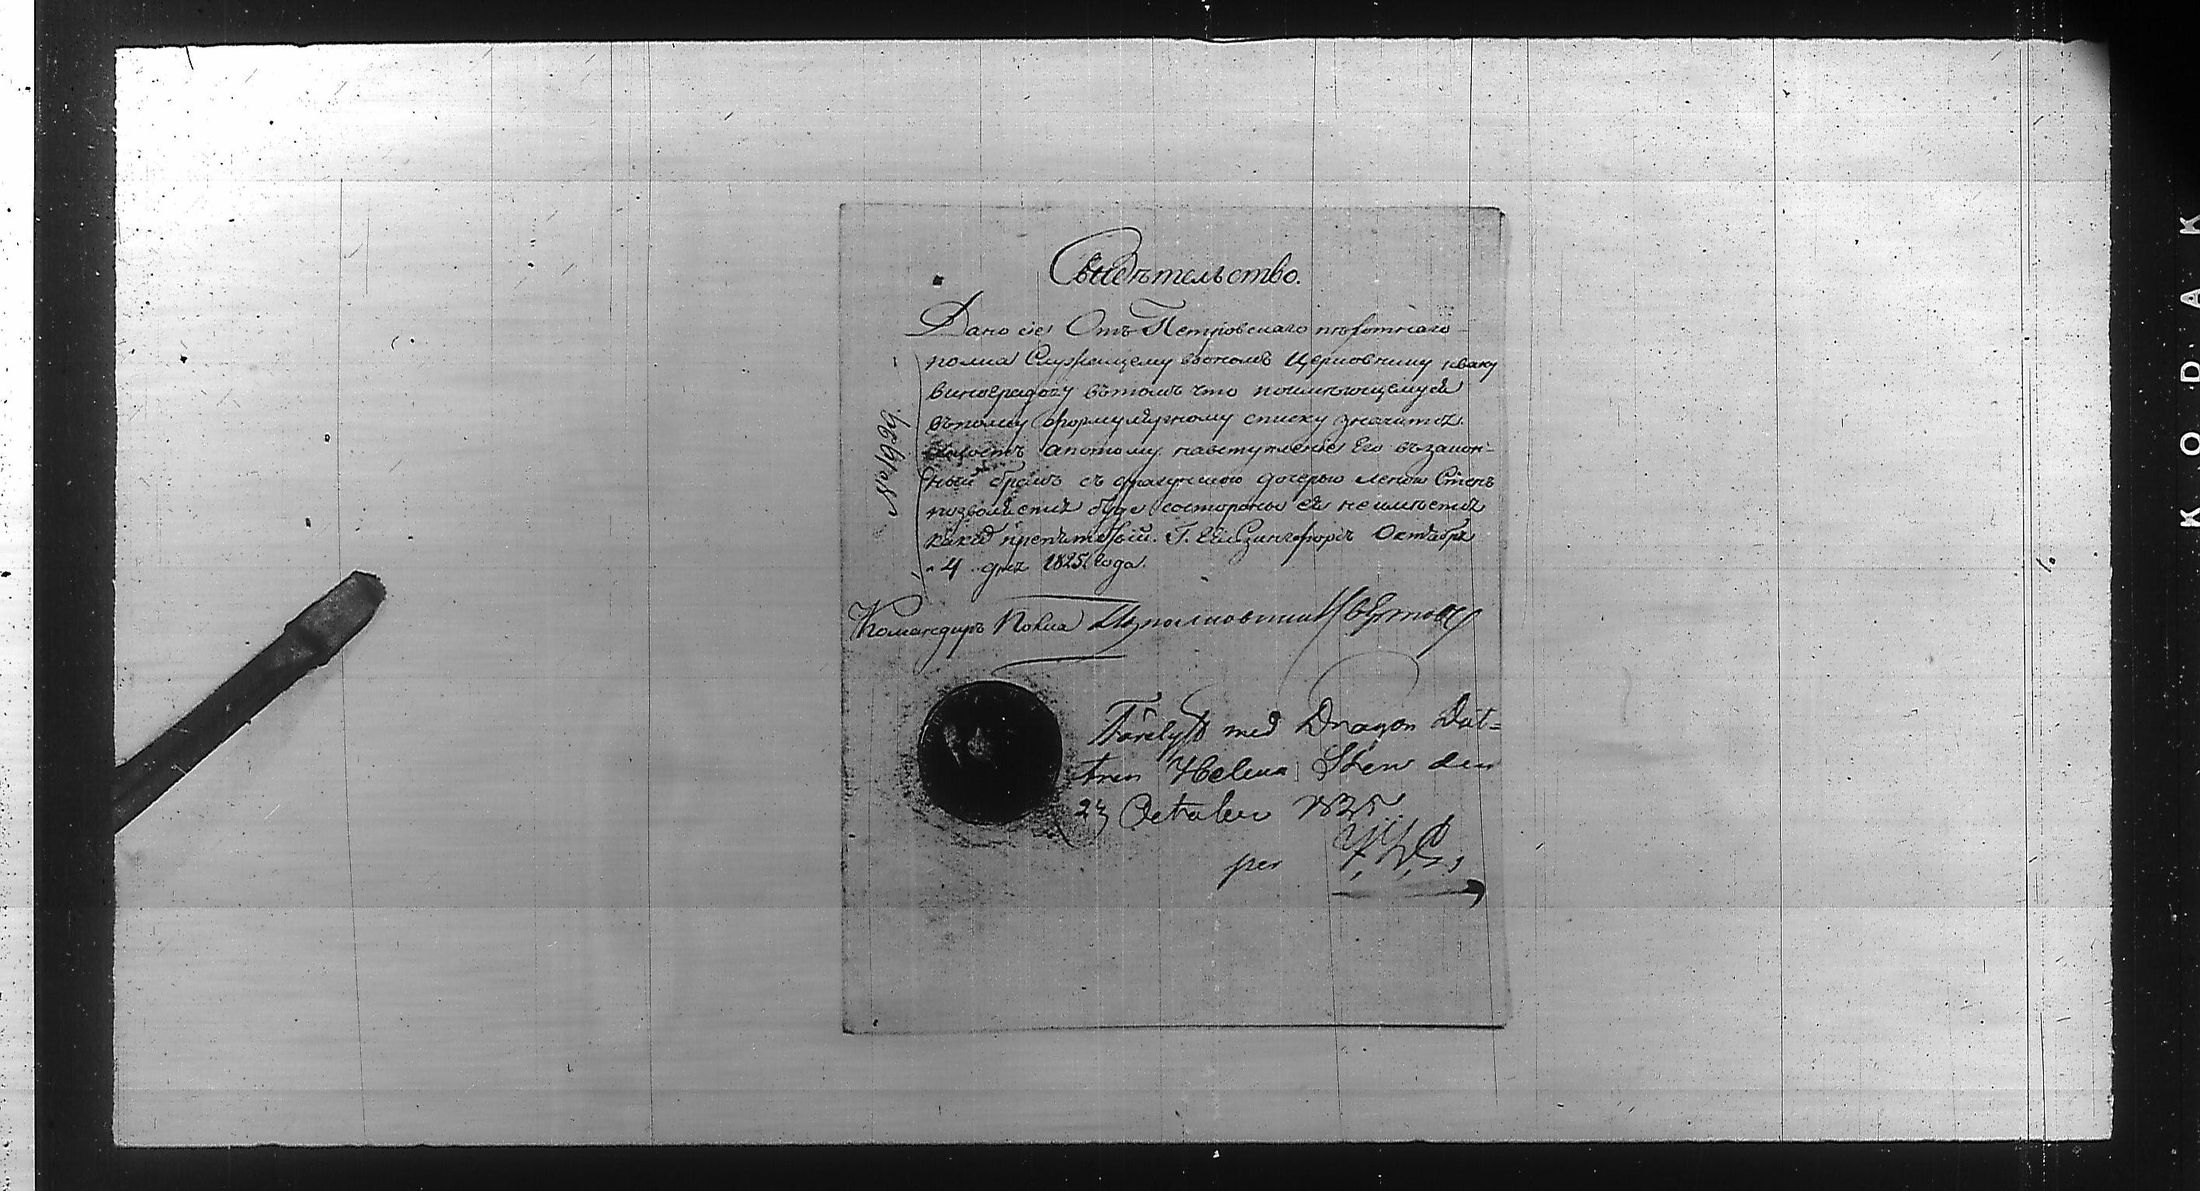 Свидѣтельство.
Дано сіе Отъ Петровскаго пѣхотнаго
полка Служащему вономъ Церковнику ивану
виноградову вътомъ что поимѣющемуся
въполку формулярному списку значится
холостъ апотому навступленіе Его възакон-
ный бракъ съ драгунскою дочерью леною Стенъ
позволяется буде состороны ея неимѣется
какихъ препятствій. Г. Гелзингфорсъ Октября
"4" дня 1825 года.
№ 1929.
Командиръ Полка Подполковникъ
Förelyst med Dragon Dot=
tren Helena Sten den
23 October 1825.
per
KODAK